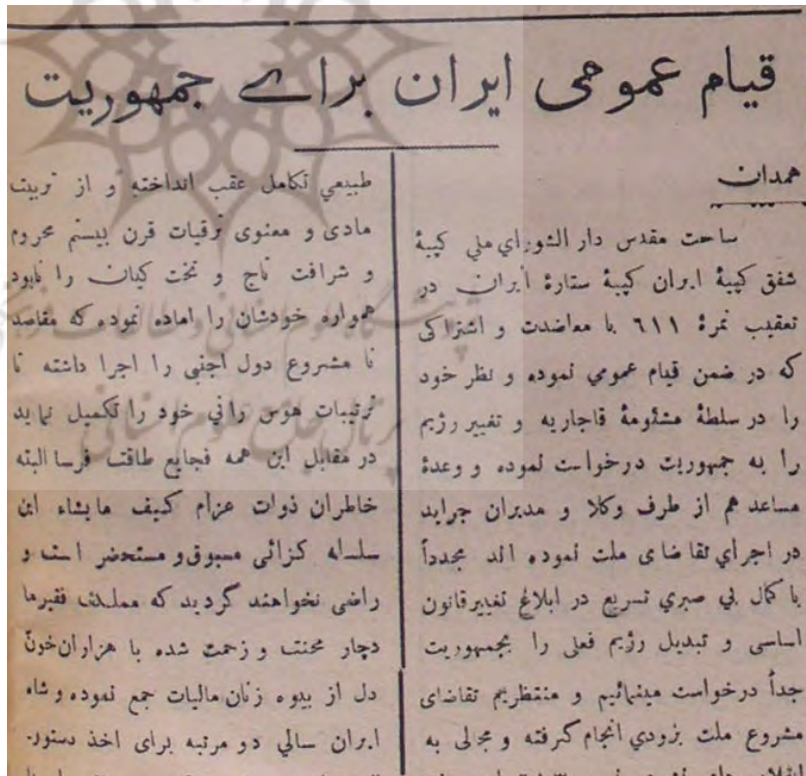 قیام عمومی ایران برای جمهوریت
همدان
ساحت مقدس دار الشورای ملی کپیهٔ
شفق کپیهٔ ایران کپیهٔ ستارهٔ ایران در
تعقیب نمرهٔ ٦١١ با معاضدت و اشتراکی
که در ضمن قیام عمومی نموده و نظر خود
را در سلطهٔ مشئومهٔ قاجاریه و تغییر رژیم
را به جمهوریت درخواست نموده و وعدهٔ
مساعد هم از طرف وکلا و مدیران جراید
در اجرای تقاضای ملت نموده اند مجدداً
با کمال بی صبری تسریع در ابلاغ تغییرقانون
اساسی و تبدیل رژیم فعلی را بجمهوریت
جداً درخواست مینمائیم و منتظریم تقاضای
مشروع ملت بزودی انجام گرفته و مجالی به
طبیعی تکامل عقب انداخته و از تربیت
مادی و معنوی ترقیات قرن بیستم محروم
و شرافت تاج و تخت کیان را نابود
همواره خودشان را اماده نموده که مقاصد
نا مشروع دول اجنبی را اجرا داشته تا
ترتیبات هوس رانی خود را تکمیل نماید
در مقابل این همه فجایع طاقت فرسا البته
خاطران ذوات عزام کیف مایشاء این
سلسله کزائی مسبوق و مستحضر است و
راضی نخواهند گردید که مملکت فقیرما
دچار محنت و زحمت شده با هزاران خون
دل از بیوه زنان مالیات جمع نموده و شاه
ایران سالی دو مرتبه برای اخذ دستور